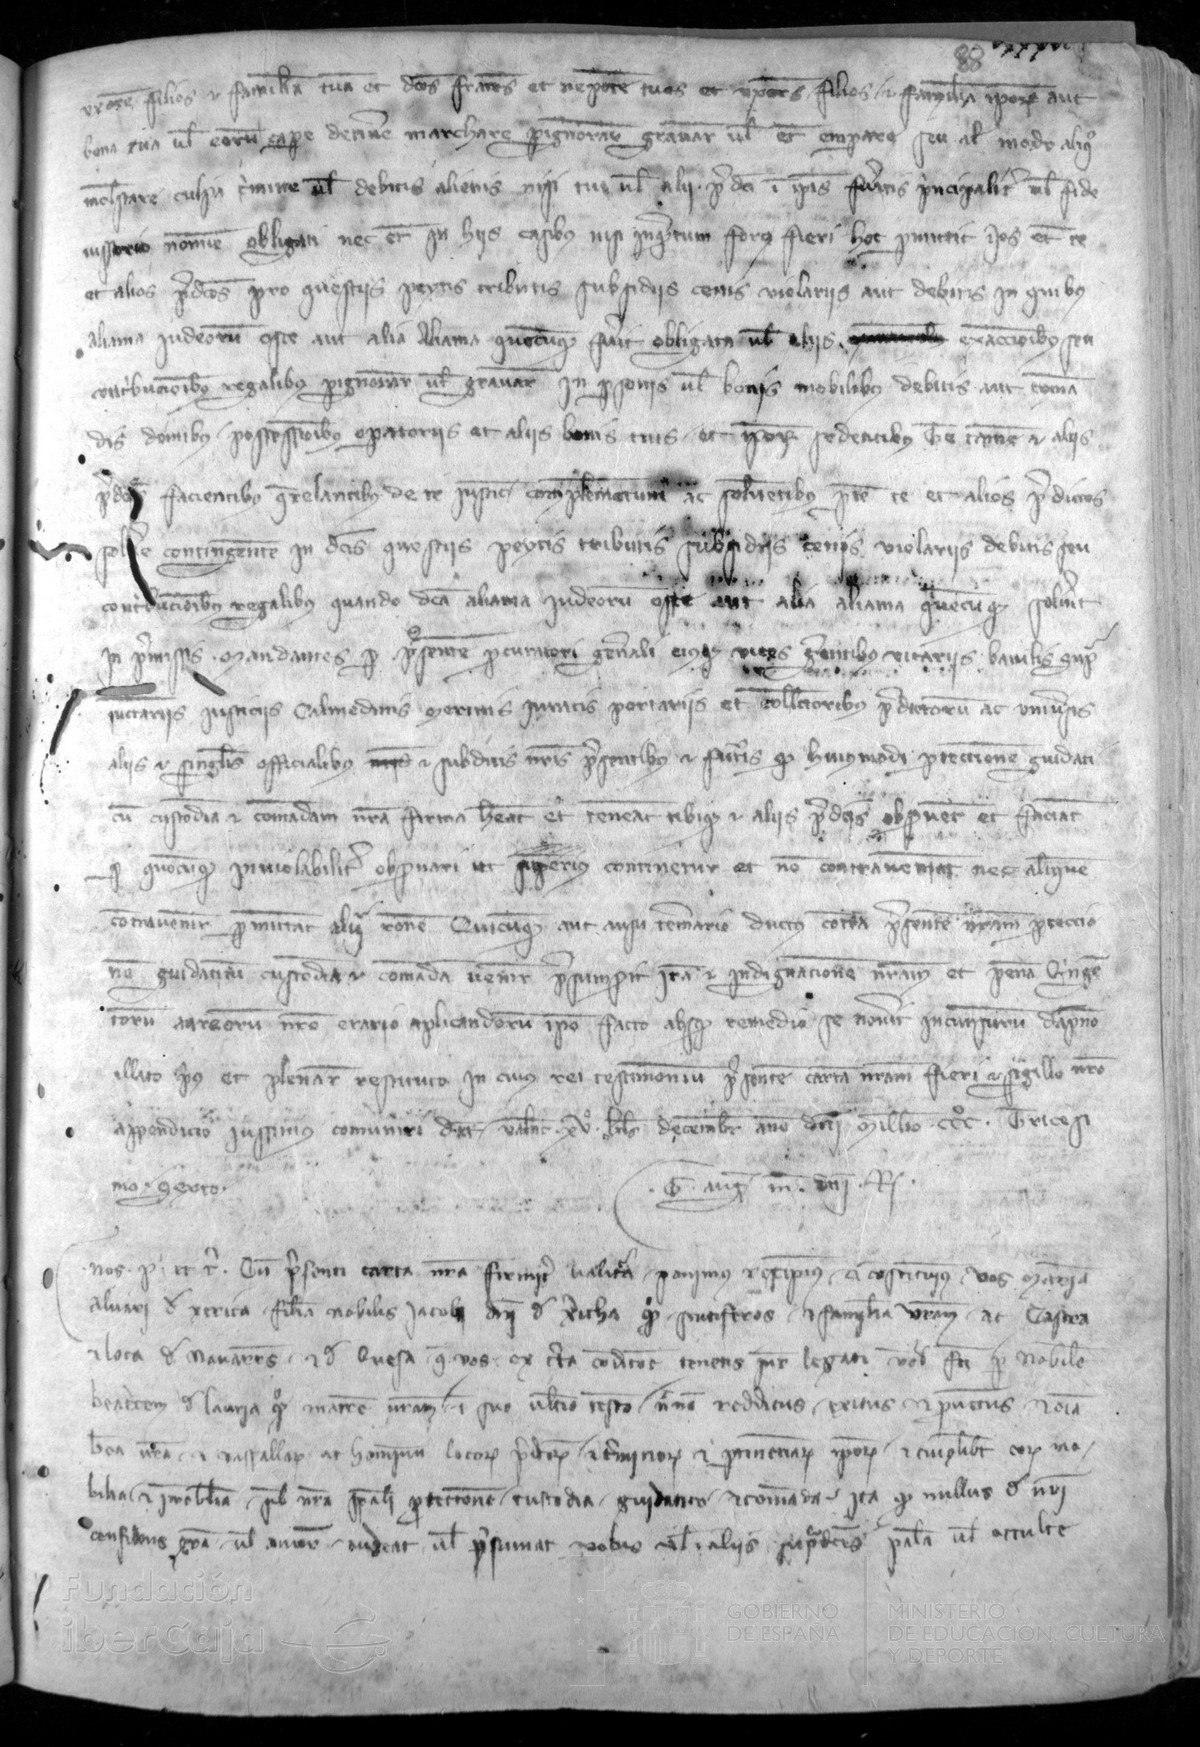 88
uxorem filios et familiã tuã et dc̃os fratres et nepotes tuos et uxores filios et familia ip̃orum aut
bona tua ul̃ eorũ cap̃e detinere marchare pignorare gravare ul̃ et̃ emparare seu al̃ modo aliq̊
molestare culpa crimine ul̃ debitis alienis nisi tu ul̃ alii p̃dc̃i ĩ ip̃is fueritis principalit̃ ul̃ fide
iussorio nomine obligati nec et̃ in hiis casibus nisi inquantum foro fieri hoc permittit ip̃os et̃ te
et alios p̃dc̃os pro questiis peytis tributis subsidiis cenis violariis aut debitis in quibus
aliama iudeorũ Osce aut alia aliama quecumque fuerit obligata ul̃ aliis exaccionibus seu
contribucionibus regalibus pignorare ul̃ gravare in personis ul̃ bonis mobilibus debitis aut comã
dis domibus possessionibus operatoriis et aliis bonis tuis et ip̃orum sedentibus te tamen et aliis
p̃dc̃is facientibus querelantibus de te iustic̃ complementum ac solventibus p̃te te et alios p̃dictos
solṽe contingente in dc̃is questiis peytis tributis subsidiis cenis violariis debitis seu
contribucionibus regalibus quando dc̃a aliama iudeorũ Osce aut alia aliama quecumque solverit
in p̃missis Mandantes p p̃sentẽ p̃curatori gen̄ali eiusque vices gerentibus vicariis baiulis sup̃
iunctariis iusticiis Calmedinis merinis iuratis portariis et collectoribus p̃dictorũ ac universis
aliis et singulis officialibus et subditis nr̃is p̃sentibus et futuris q̃ huiusmodi protectionem guidati
cũ custodia et comandam nr̃a firma habeãt et teneãt tibique et aliis p̃dc̃is observent et faciãt
a quocumque inviolabilit̃ observari ut superius continetur et nõ contraveniãt nec aliquem
contravenire permittãt aliq̃ rõne Quicumque aut ausu temerario ductus contra p̃sentem nr̃am proteccio
nẽ guidaticũ custodia et comãda venire p̃sumpserit irã et indignacionẽ nr̃am et penã Quingẽ
torũ aureorũ nr̃o erario aplicandorũ ip̃o facto absque remedio se noverit incursurũ dapno
illato p̃us et plenarie restituto In cuius rei testimoniũ p̃sentẽ carta nr̃am fieri et sigillo nr̃o
appendicio iussimus comuniri Dat̃ Valenc̃ xv̊ kl̃s decembr̃ anno dñi Millio CCC̊ Tricesi
mo Sexto. G. aug̃ m̃ dñi R̃.
Nos P et c̃. Cũ p̃senti carta nr̃a firmit̃ valitura ponimus recipimus et constituimus vos Maria
Alvari d̃ Xerica filia nobilis Jacobi dñi d̃ Xericha et familia vr̃am ac Castra
et loca d̃ Navarres et d̃ Quesa q̃ vos ex c̃ta tenetis legati vob̃ fc̃i p̃ Nobilẽ
beatricem d̃ lauria matrẽ vr̃am ĩ suo ultĩo test̃o redditus exitus et p̃ventus et oĩa
bona vr̃a et vassallorum ac hominũ locorum p̃dc̃orum et terminorum et pertinenciarum ip̃orum et cuiuslibet eorum mo
bilia et ĩmobilia sub nr̃a sp̃ali protectione custodia guidatico et comãda Ita q̃ nullus d̃ nr̃i
confidens gr̃a ul̃ amore audeat ul̃ p̃sumat vobis ul̃ aliis sup̃dc̃is palã ul̃ occulte
Fundación
iberCaja
GOBIERNO
DE ESPAÑA
MINISTERIO
DE EDUCACIÓN, CULTURA
Y DEPORTE